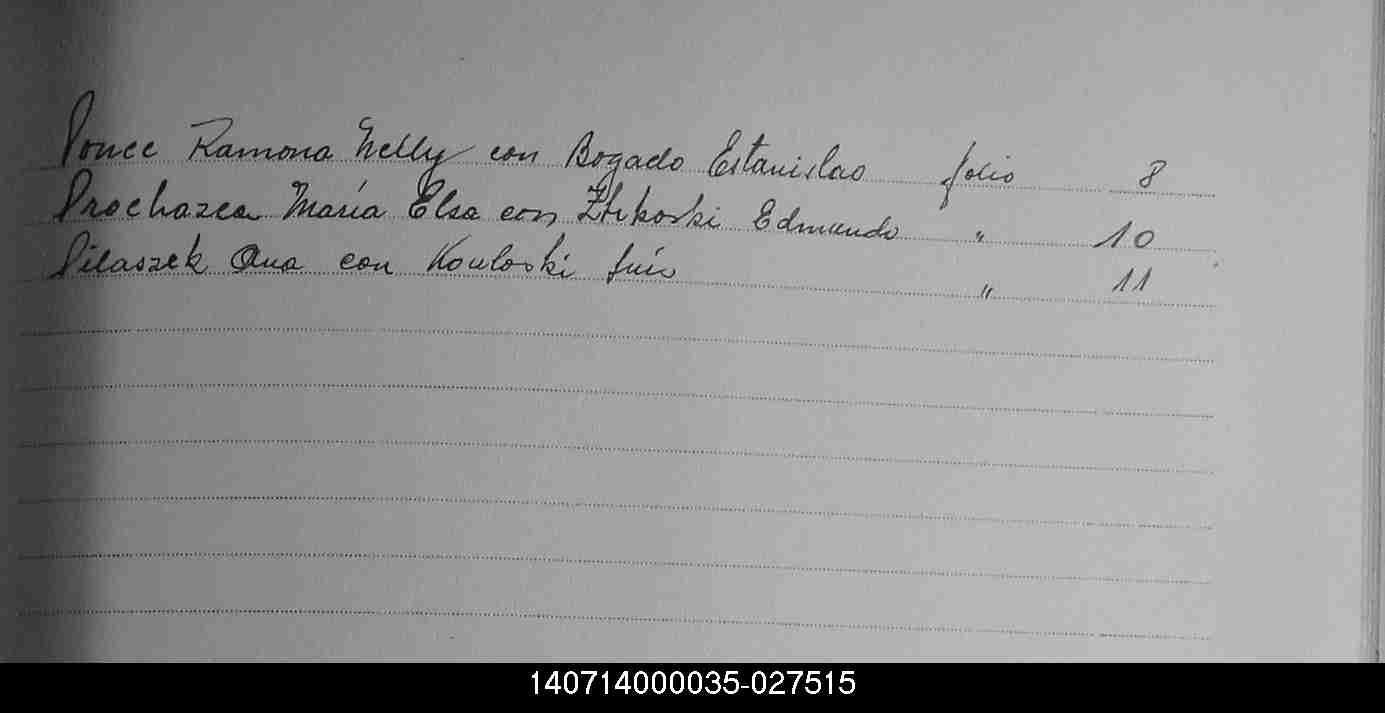 Ponce Ramona Nelly con Bogado Estanislao folio 8
Prochazca María Elsa con Edmundo " 10
Pilaszek Ana con Kouloski " 11
140714000035-027515